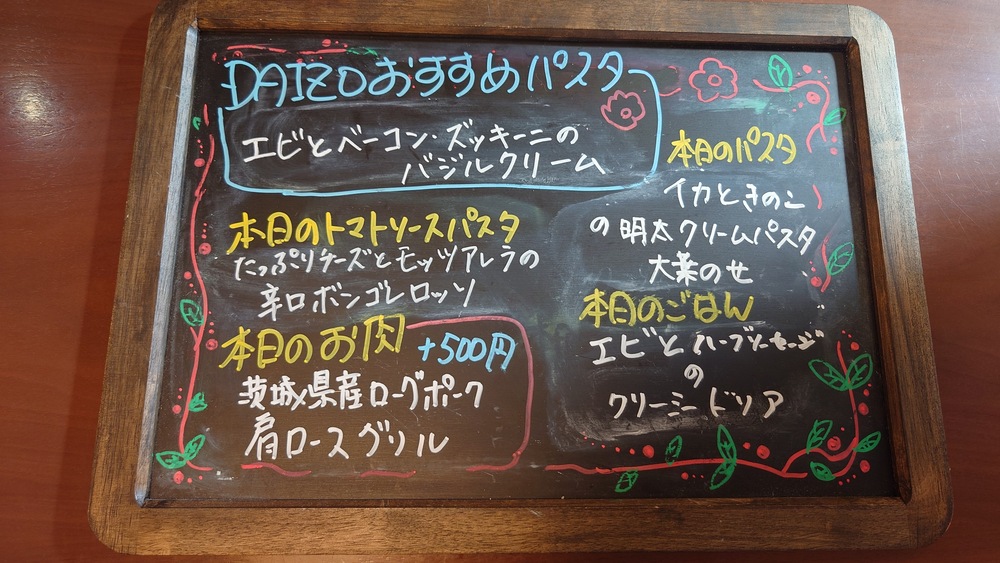 DAIZOおすすめパスタ
エビとベーコン・ズッキーニの
バジルクリーム
本日のトマトソースパスタ
たっぷりチーズとモッツアレラの
辛口ボンゴレロッソ
本日のお肉 +500円
茨城県産ローグポーク
肩ロースグリル
本日のパスタ
イカときのこ
の明太クリームパスタ
大葉のせ
本日のごはん
エビとハーブソーセージ
の
クリーミードリア